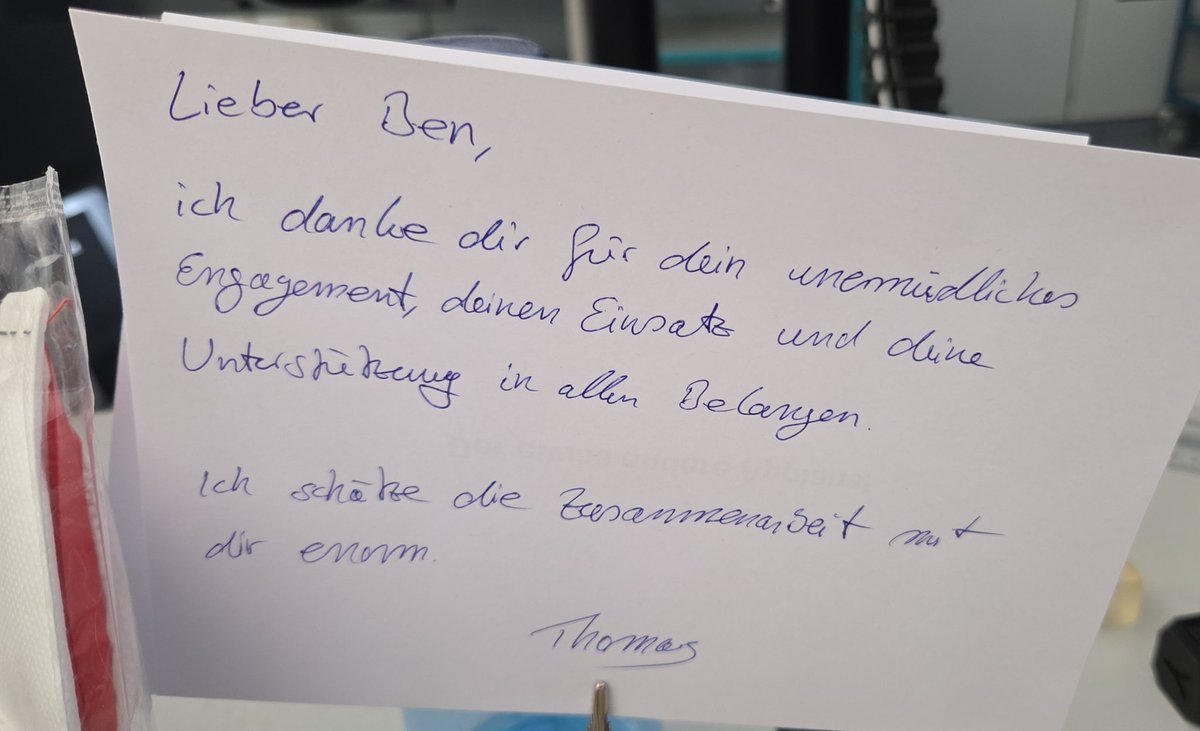 Lieber Ben,
ich danke dir für dein unermüdliches
Engagement, deinen Einsatz und deine
Unterstützung in allen Belangen.
Ich schätze die Zusammenarbeit mit
dir enorm.
Thomas